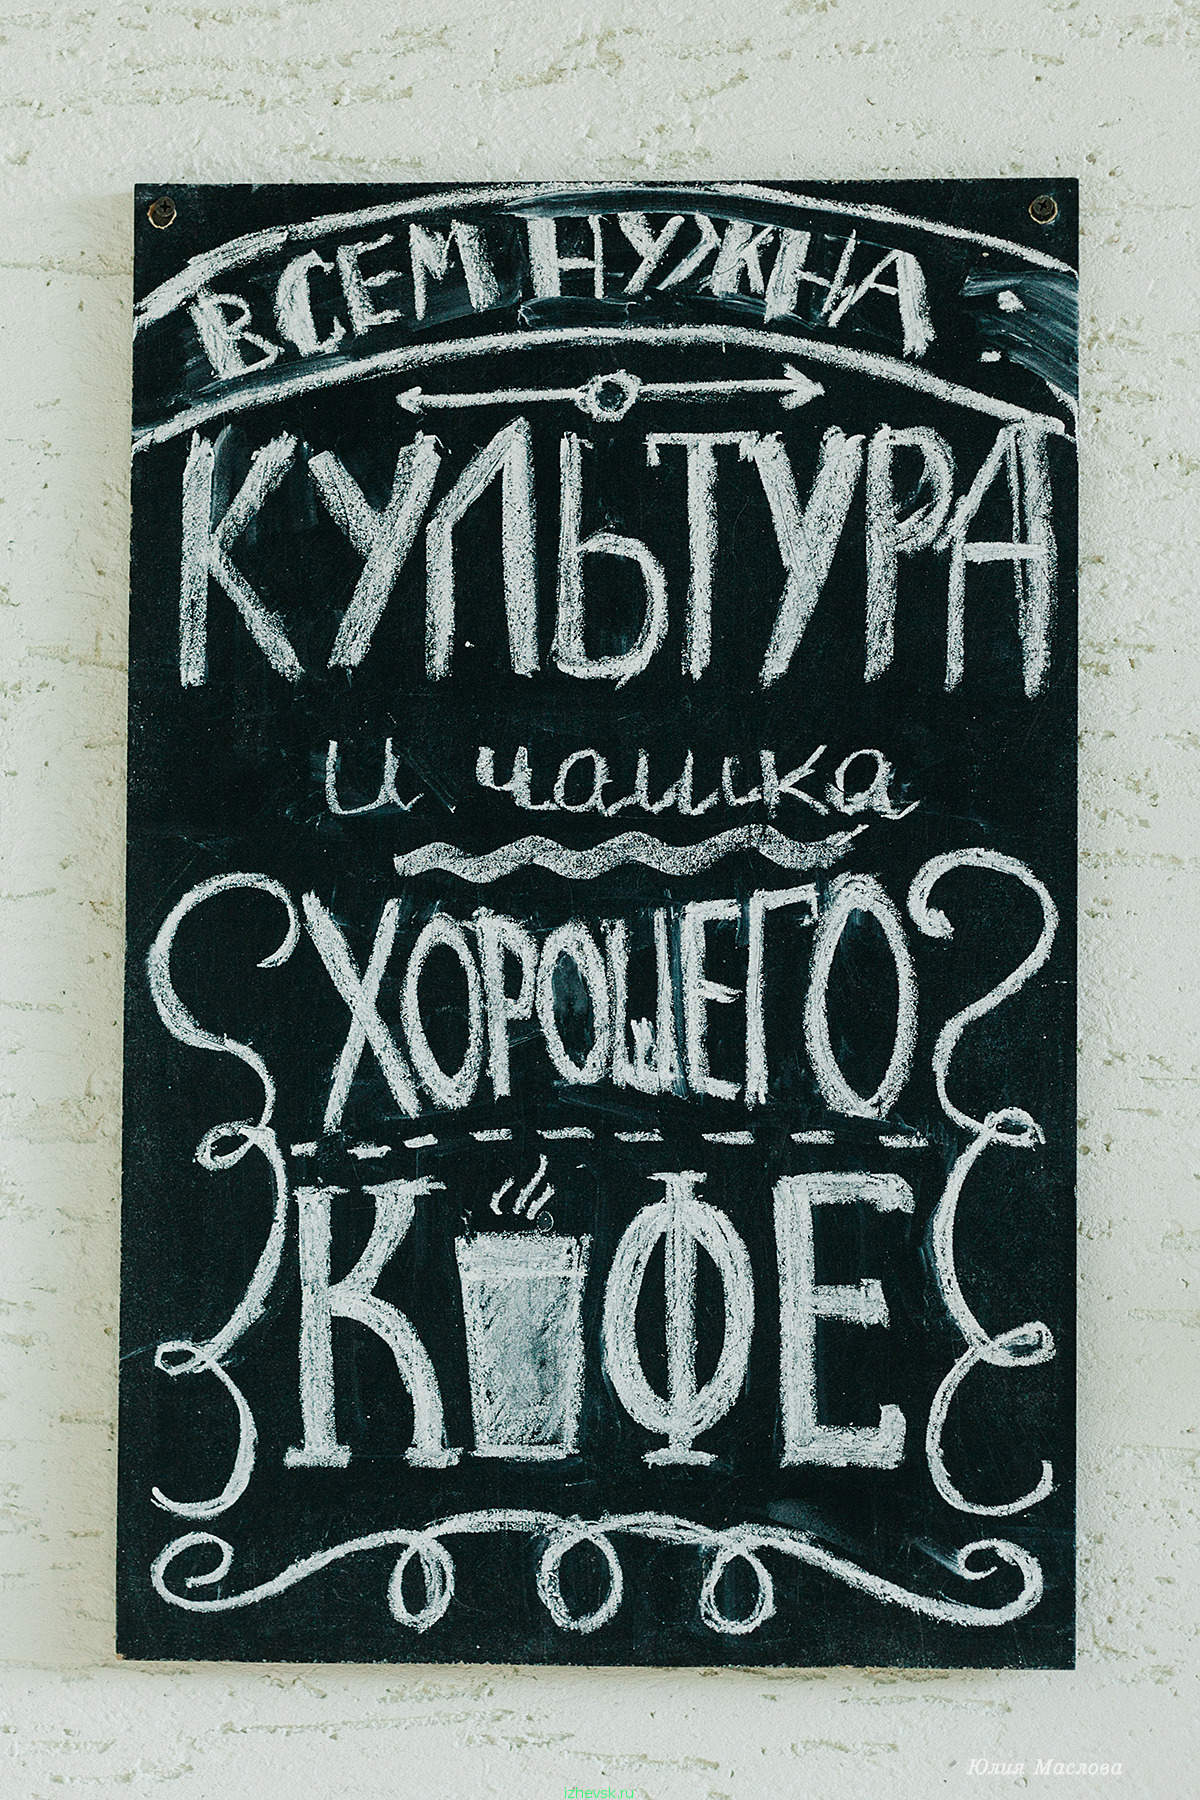 ВСЕМ НУЖНА :
КУЛЬТУРА
и чашка
ХОРОШЕГО
КОФЕ
Юлия Маслова
izhevsk.ru